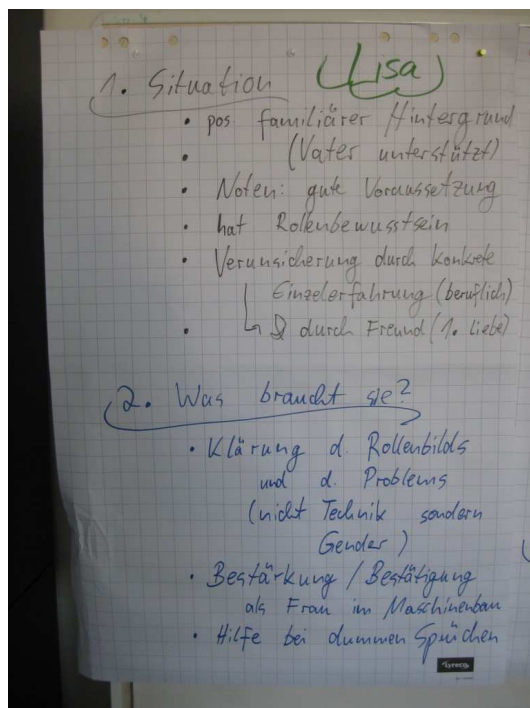 Lisa
1. Situation
• pos familiärer Hintergrund
• (Vater unterstützt)
• Noten: gute Voraussetzung
• hat Rollenbewusstsein
• Verunsicherung durch konkrete
Einzelerfahrung (beruflich)
• durch Freund (1. Liebe)
2. Was braucht sie?
• Klärung d. Rollenbilds
und d. Problems
(nicht Technik sondern
Gender)
• Bestärkung / Bestätigung
als Frau im Maschinenbau
• Hilfe bei dummen Sprüchen
lyreco